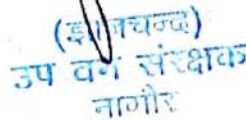 (ज्ञानचन्द)
उप वन संरक्षक
नागौर